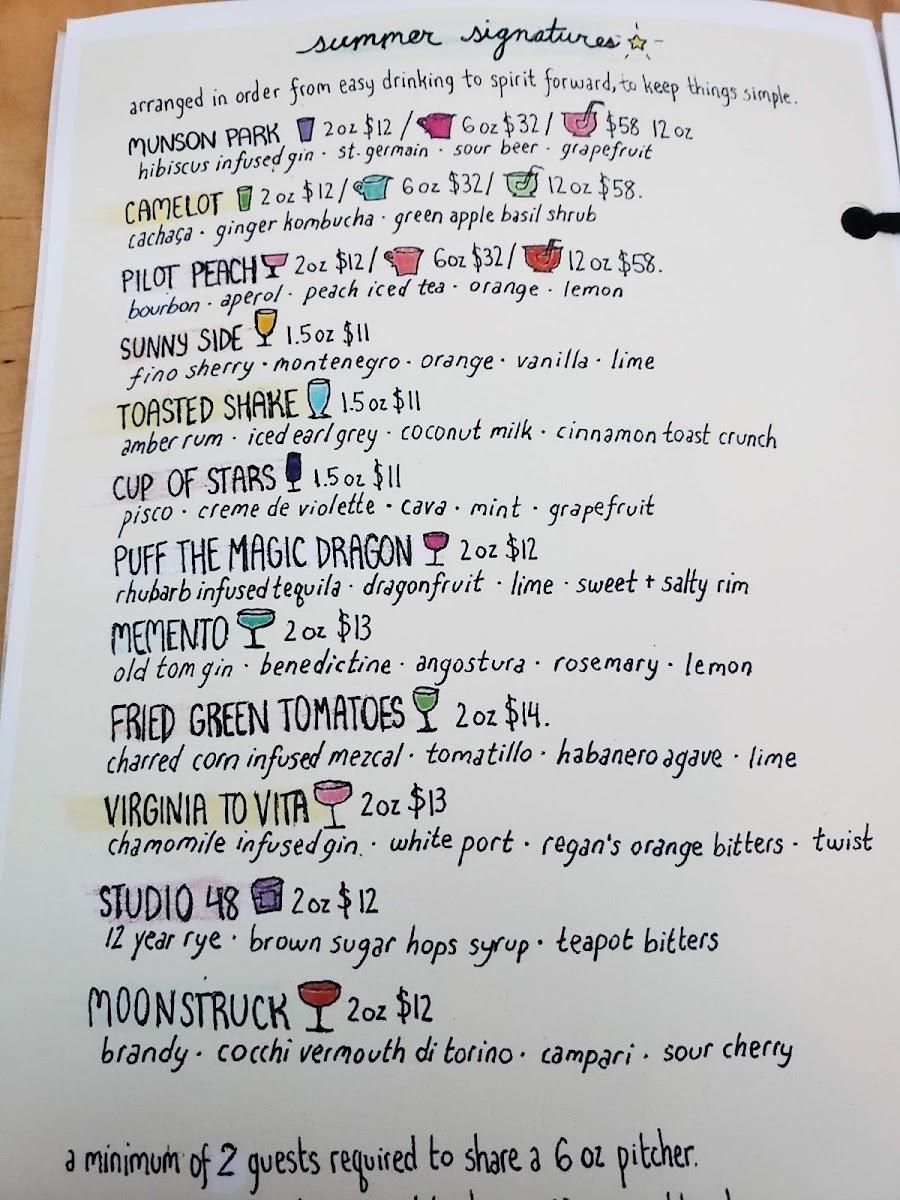 summer signatures
arranged in order from easy drinking to spirit forward, to keep things simple.
MUNSON PARK 2oz $12 / 6oz $32 / $58 12oz
hibiscus infused gin · st. germain · sour beer · grapefruit
CAMELOT 2 oz $12 / 6oz $32 / 12oz $58.
cachaça · ginger kombucha · green apple basil shrub
PILOT PEACH 2oz $12 / 6oz $32 / 12 oz $58.
bourbon · aperol · peach iced tea · orange · lemon
SUNNY SIDE 1.5oz $11
fino sherry · montenegro · orange · vanilla · lime
TOASTED SHAKE 1.5oz $11
amber rum · iced earl grey · coconut milk · cinnamon toast crunch
CUP OF STARS 1.5oz $11
pisco · creme de violette · cava · mint · grapefruit
PUFF THE MAGIC DRAGON 2oz $12
rhubarb infused tequila · dragonfruit · lime · sweet + salty rim
MEMENTO 2oz $13
old tom gin · benedictine · angostura · rosemary · lemon
FRIED GREEN TOMATOES 2oz $14.
charred corn infused mezcal · tomatillo · habanero agave · lime
VIRGINIA TO VITA 2oz $13
chamomile infused gin · white port · regan's orange bitters · twist
STUDIO 48 2oz $12
12 year rye · brown sugar hops syrup · teapot bitters
MOONSTRUCK 2oz $12
brandy · cocchi vermouth di torino · campari · sour cherry
a minimum of 2 guests required to share a 6 oz pitcher.